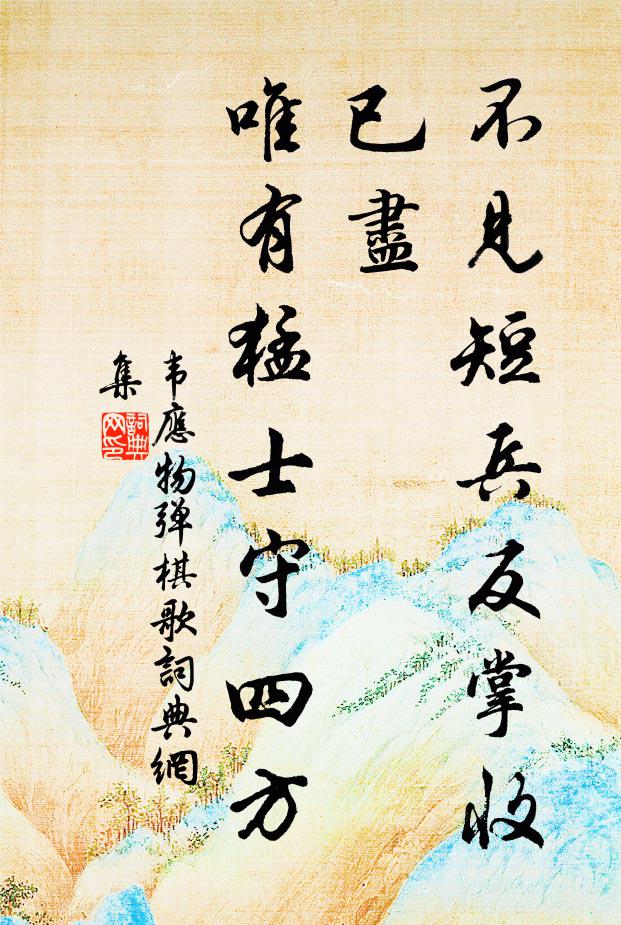 不見短兵反掌收
已盡
唯有猛士守四方
韦應物弹棋歌詞典網
集
詞典
网印